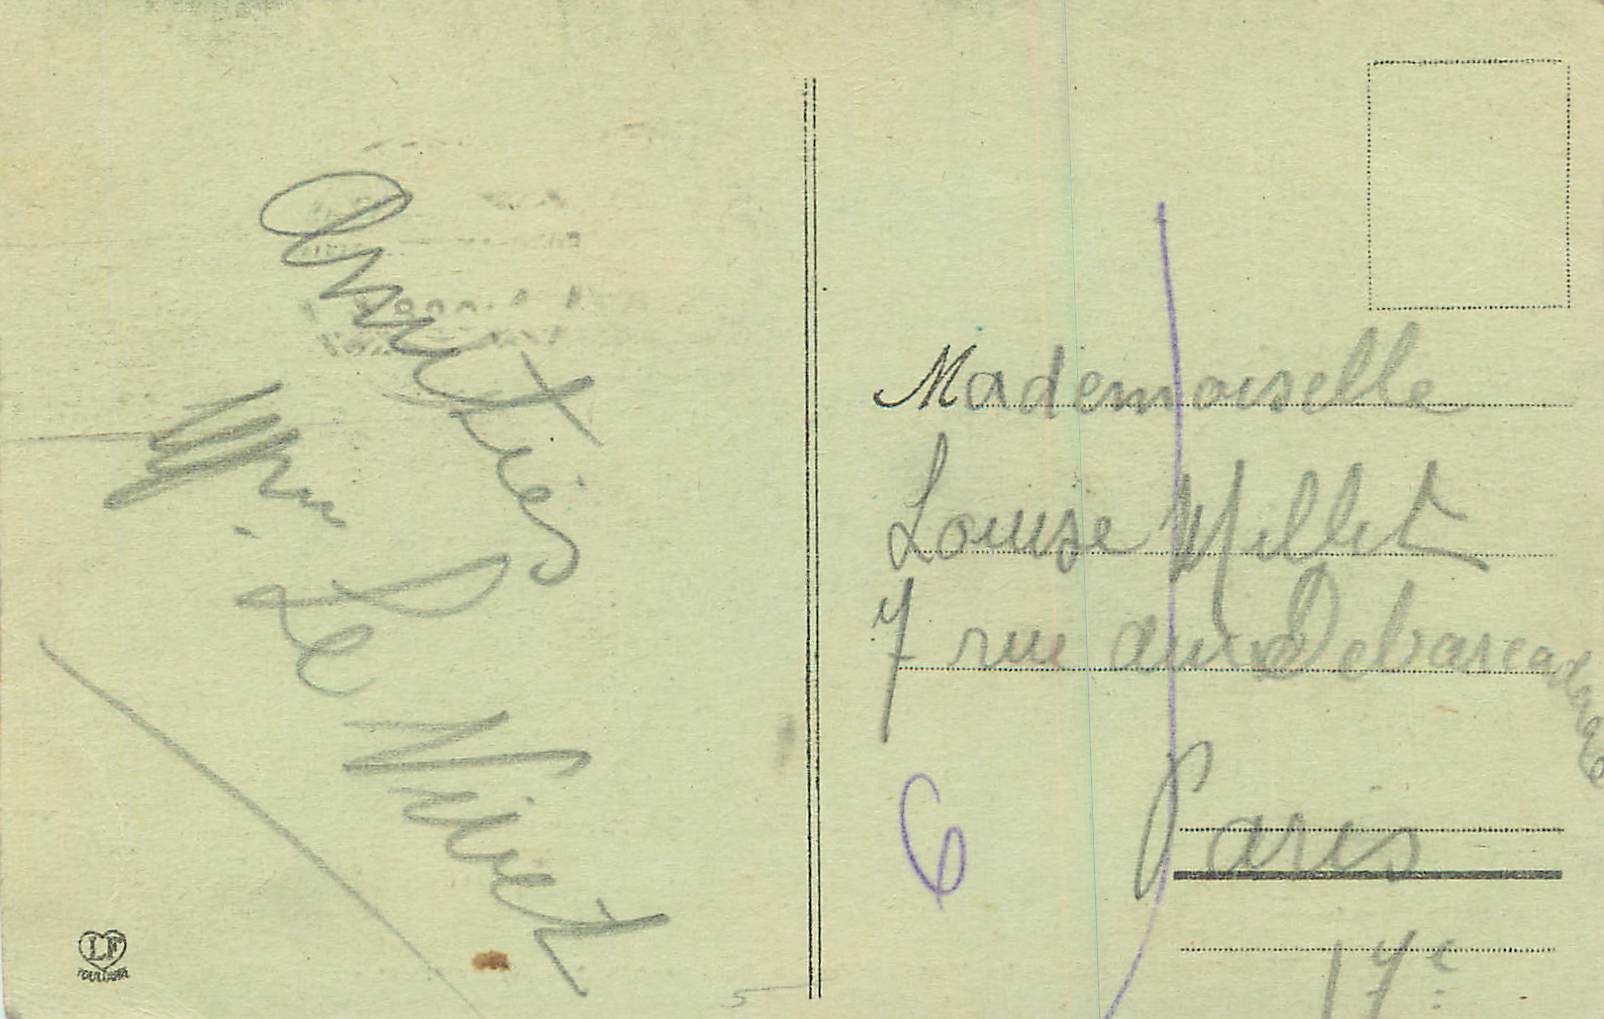 Amitiés
P. Le Nivet
Mademoiselle
Louise Millet
7 rue du Debarcadère
Paris
17e
6
5
LF
TOULOUSE